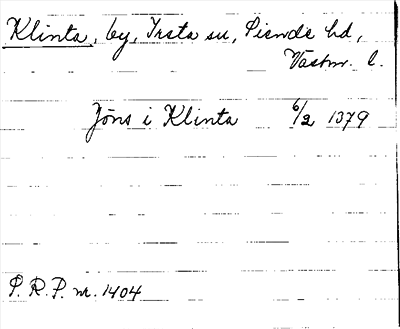 Klinta, by, Irsta sn, Siende hd,
Västm. l.
Jöns i Klinta 6/2 1379
P. R. P. nr. 1404